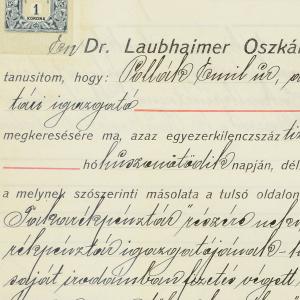 1
KORONA
Én Dr. Laubhaimer Oszká
tanusítom, hogy: Pollák Emil úr,
igazgató
megkeresésére ma, azaz egyezerkilenczszáz tiz
hó huszonötödik napján, dél
a melynek szószerinti másolata a tulsó oldalon
Takarékpénztár részére
rékpénztár igazgatójának
saját irodámban fizetés végett